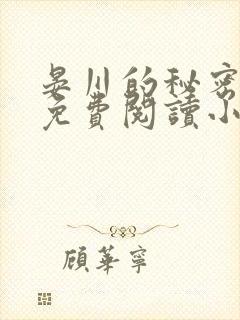 晏川的秘密
免費閱讀小
顧華寧